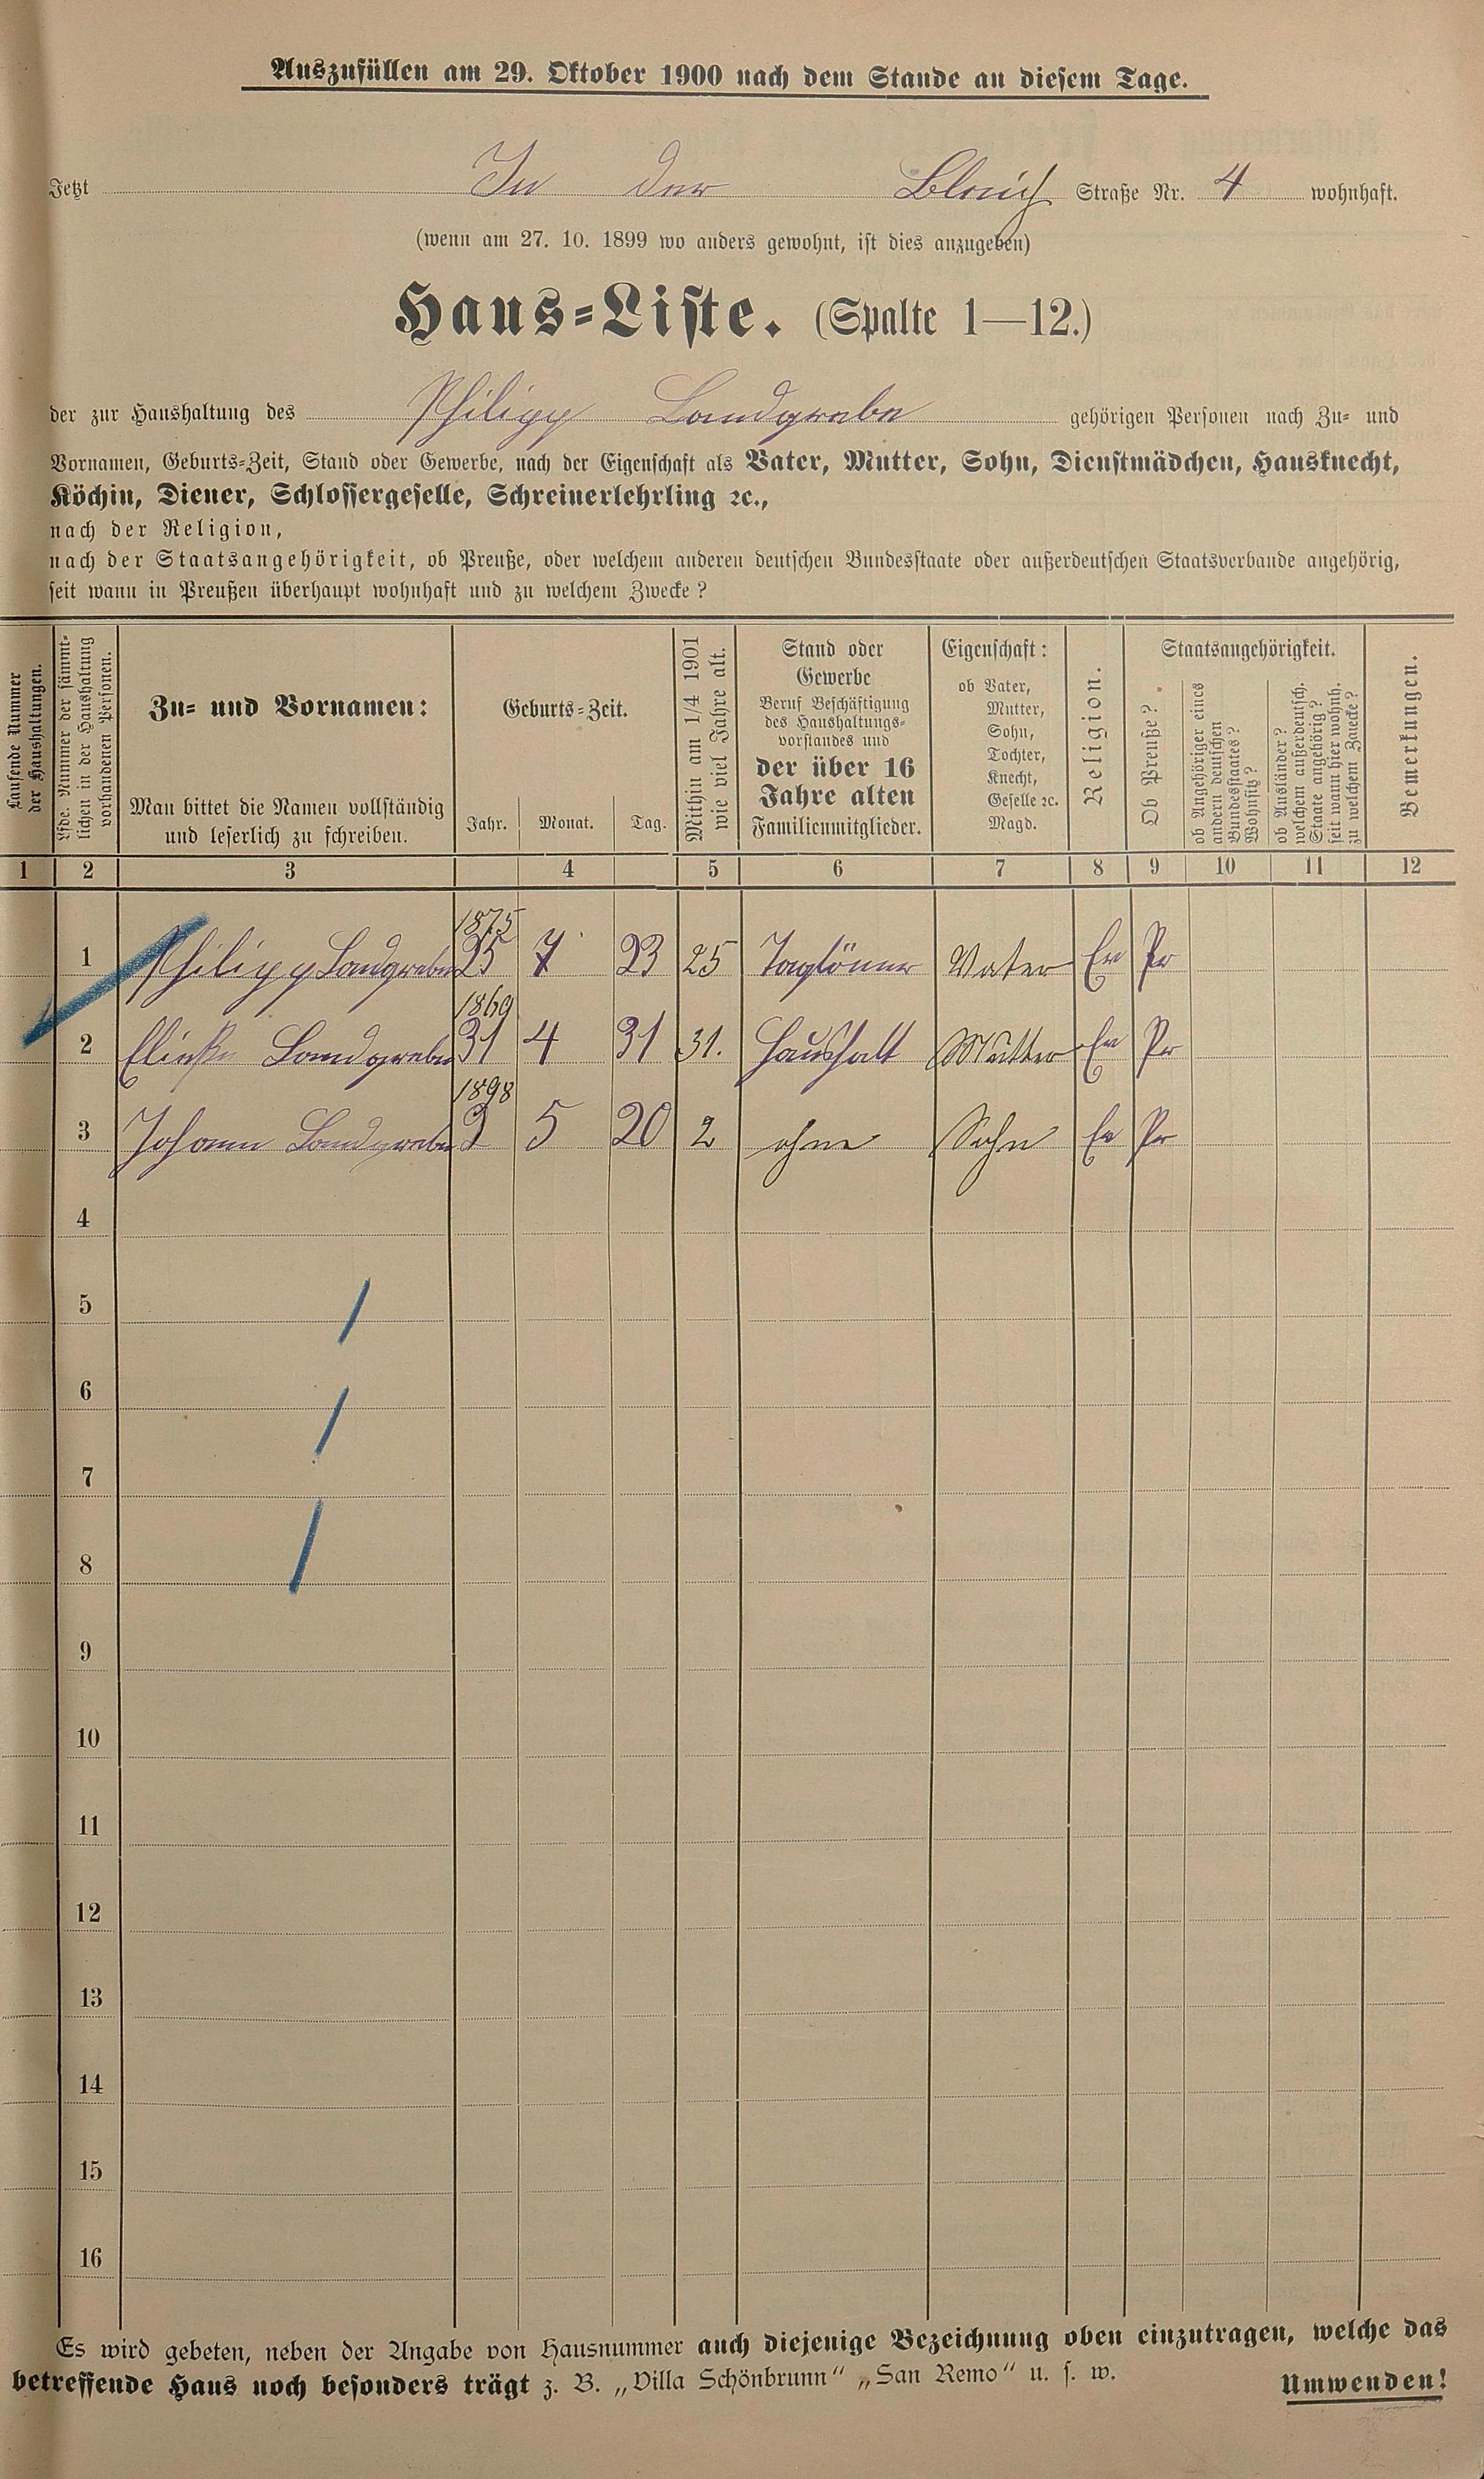 Auszufüllen am 29. Oktober 1900 nach dem Stande an diesem Tage.
Jetzt In der Bleich Straße Nr. 4 wohnhaft.
(wenn am 27. 10. 1899 wo anders gewohnt, ist dies anzugeben)
Haus-Liste. (Spalte 1—12.)
der zur Haushaltung des Philipp Landgrebe gehörigen Personen nach Zu- und
Vornamen, Geburts-Zeit, Stand oder Gewerbe, nach der Eigenschaft als Vater, Mutter, Sohn, Dienstmädchen, Hausknecht,
Köchin, Diener, Schlossergeselle, Schreinerlehrling ꝛc.,
nach der Religion,
nach der Staatsangehörigkeit, ob Preuße, oder welchem anderen deutschen Bundesstaate oder außerdeutschen Staatsverbande angehörig,
seit wann in Preußen überhaupt wohnhaft und zu welchem Zwecke?
Laufende Nummer
der Haushaltungen.
Lfde. Nummer der sämmt-
lichen in der Haushaltung
vorhandenen Personen.
Zu- und Vornamen:
Man bittet die Namen vollständig
und leserlich zu schreiben.
Geburts-Zeit.
Jahr. Monat. Tag.
Mithin am 1/4 1901
wie viel Jahre alt.
Stand oder
Gewerbe
Beruf Beschäftigung
des Haushaltungs-
vorstandes und
der über 16
Jahre alten
Familienmitglieder.
Eigenschaft:
ob Vater,
Mutter,
Sohn,
Tochter,
Knecht,
Geselle ꝛc.
Magd.
Religion.
Staatsangehörigkeit.
Ob Preuße?
ob Angehöriger eines
andern deutschen
Bundesstaates?
Wohnsitz?
ob Ausländer?
welchem außerdeutsch.
Staate angehörig?
seit wann hier wohnh.
zu welchem Zwecke?
Bemerkungen.
1 2 3 4 5 6 7 8 9 10 11 12
1875
1 Philipp Landgrebe 25 7 23 25 Taglöner Vater Ev Pr
1869
2 Landgrebe 31 4 31 31. Haushalt Mutter Ev Pr
1898
3 Johann Landgrebe 5 20 2 ohne Sohn Ev Pr
4
5
6
7
8
9
10
11
12
13
14
15
16
Es wird gebeten, neben der Angabe von Hausnummer auch diejenige Bezeichnung oben einzutragen, welche das
betreffende Haus noch besonders trägt z. B. „Villa Schönbrunn“ „San Remo“ u. s. w.
Umwenden!